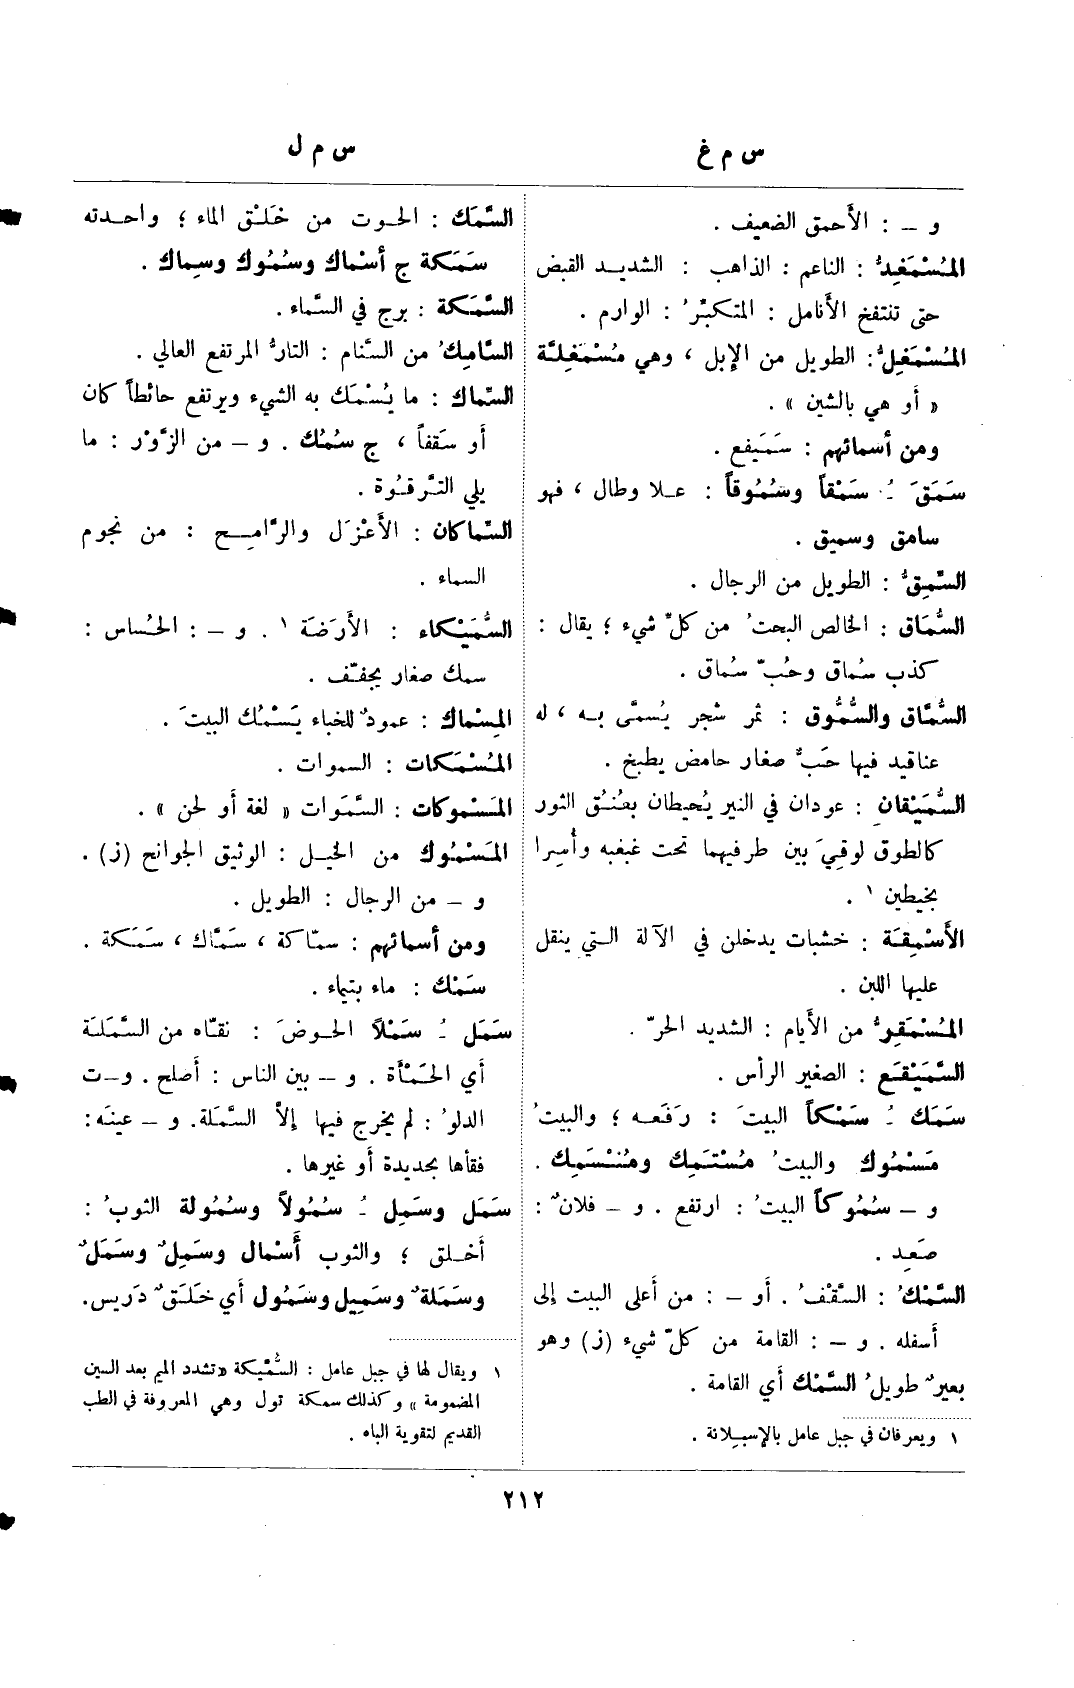 س م غ
س م ل
و – : الأَحمق الضعيف .
المُسْمَغِدُّ : الناعم : الذاهب : الشديد القبض
حتى تنتفخ الأَنامل : المتكبِّرُ : الوارم .
المُسْمَغِلُّ : الطويل من الإبل ، وهي مُسْمَغِلَّة
« أو هي بالشين » .
ومن أسمائهم : سَمَيفع .
سَمَقَ ـُ سَمْقاً وسُمُوقاً : علا وطال ، فهو
سامق وسميق .
السِّمِقُّ : الطويل من الرجال .
السُّمَاق : الخالص البحتُ من كلّ شيء ؛ يقال :
كذب سُماق وحُبّ سُماق .
السُّمَّاق والسُّمُّوق : ثمر شجر يُسمَّى به ، له
عناقيد فيها حَبٌّ صغار حامض يطبخ .
السُّمَيْقانِ : عودان في النير يُحيطان بعُنُق الثور
كالطوق لوقِيَ بين طرفيهما تحت غبغبه وأُسِرا
بخيطين ١ .
الأَسْمِقَة : خشبات يدخلن في الآلة التي ينقل
عليها اللبن .
المُسْمَقِرُّ من الأَيام : الشديد الحرّ .
السَّمَيْقَع : الصغير الرأس .
سَمَك ـُ سَمْكاً البيتَ : رَفَعه ؛ والبيتُ
مَسْمُوك والبيتُ مُسْتَمِك ومُنْسَمِك .
و – سُمُوكاً البيتُ : ارتفع . و – فلانٌ :
صَعِد .
السَّمْكُ : السَّقْفُ . أو – : من أعلى البيت إلى
أسفله . و – : القامة من كلّ شيء (ز) وهو
بعيرٌ طويلُ السَّمْك أي القامة .
١ ويعرفان في جبل عامل بالإسبلانة .
السَّمَك : الحوت من خَلْق الماء ؛ واحدته
سَمَكة ج أسْماك وسُمُوك وسِماك .
السَّمَكة : برج في السَّماء .
السَّامِكُ من السَّنام : التارُّ المرتفع العالي .
السِّماك : ما يُسْمَك به الشيء ويرتفع حائطاً كان
أو سَقفاً ، ج سُمُك . و – من الزَّوْر : ما
يلي التَّرقُوة .
السِّماكان : الأَعْزَل والرَّامِح : من نجوم
السماء .
السُّمَيْكاء : الأَرَضَة ١ . و – : الحُساس :
سمك صغار يجفّف .
المِسْماك : عمودٌ للخباء يَسْمُك البيتَ .
المُسْمَكات : السموات .
المَسْموكات : السَّمَوات « لغة أو لحن » .
المَسْمُوك من الخيل : الوثيق الجوانح (ز) .
و – من الرجال : الطويل .
ومن أسمائهم : سمّاكة ، سَمَّاك ، سَمَكة .
سَمْك : ماء بتيماء .
سَمَل ـُ سَمْلاً الحوضَ : نقّاه من السَّمَلة
أي الحَمْأة . و – بين الناس : أصلح . و–ت
الدلوُ : لم يخرج فيها إلاّ السَّمَلة. و – عينَه :
فقأها بحديدة أو غيرها .
سَمَل وسَمِل ـُ سُمُولاً وسُمُولة الثوبُ :
أخلق ؛ والثوب أَسْمال وسَمِلٌ وسَمَلٌ
وسَمَلةٌ وسَمِيل وسَمُول أي خَلَقٌ دَريس.
١ ويقال لها في جبل عامل : السُّمَّيكة «تشدد الميم بعد السين
المضمومة » وكذلك سمكة تول وهي المعروفة في الطب
القديم لتقوية الباه .
٢١٢